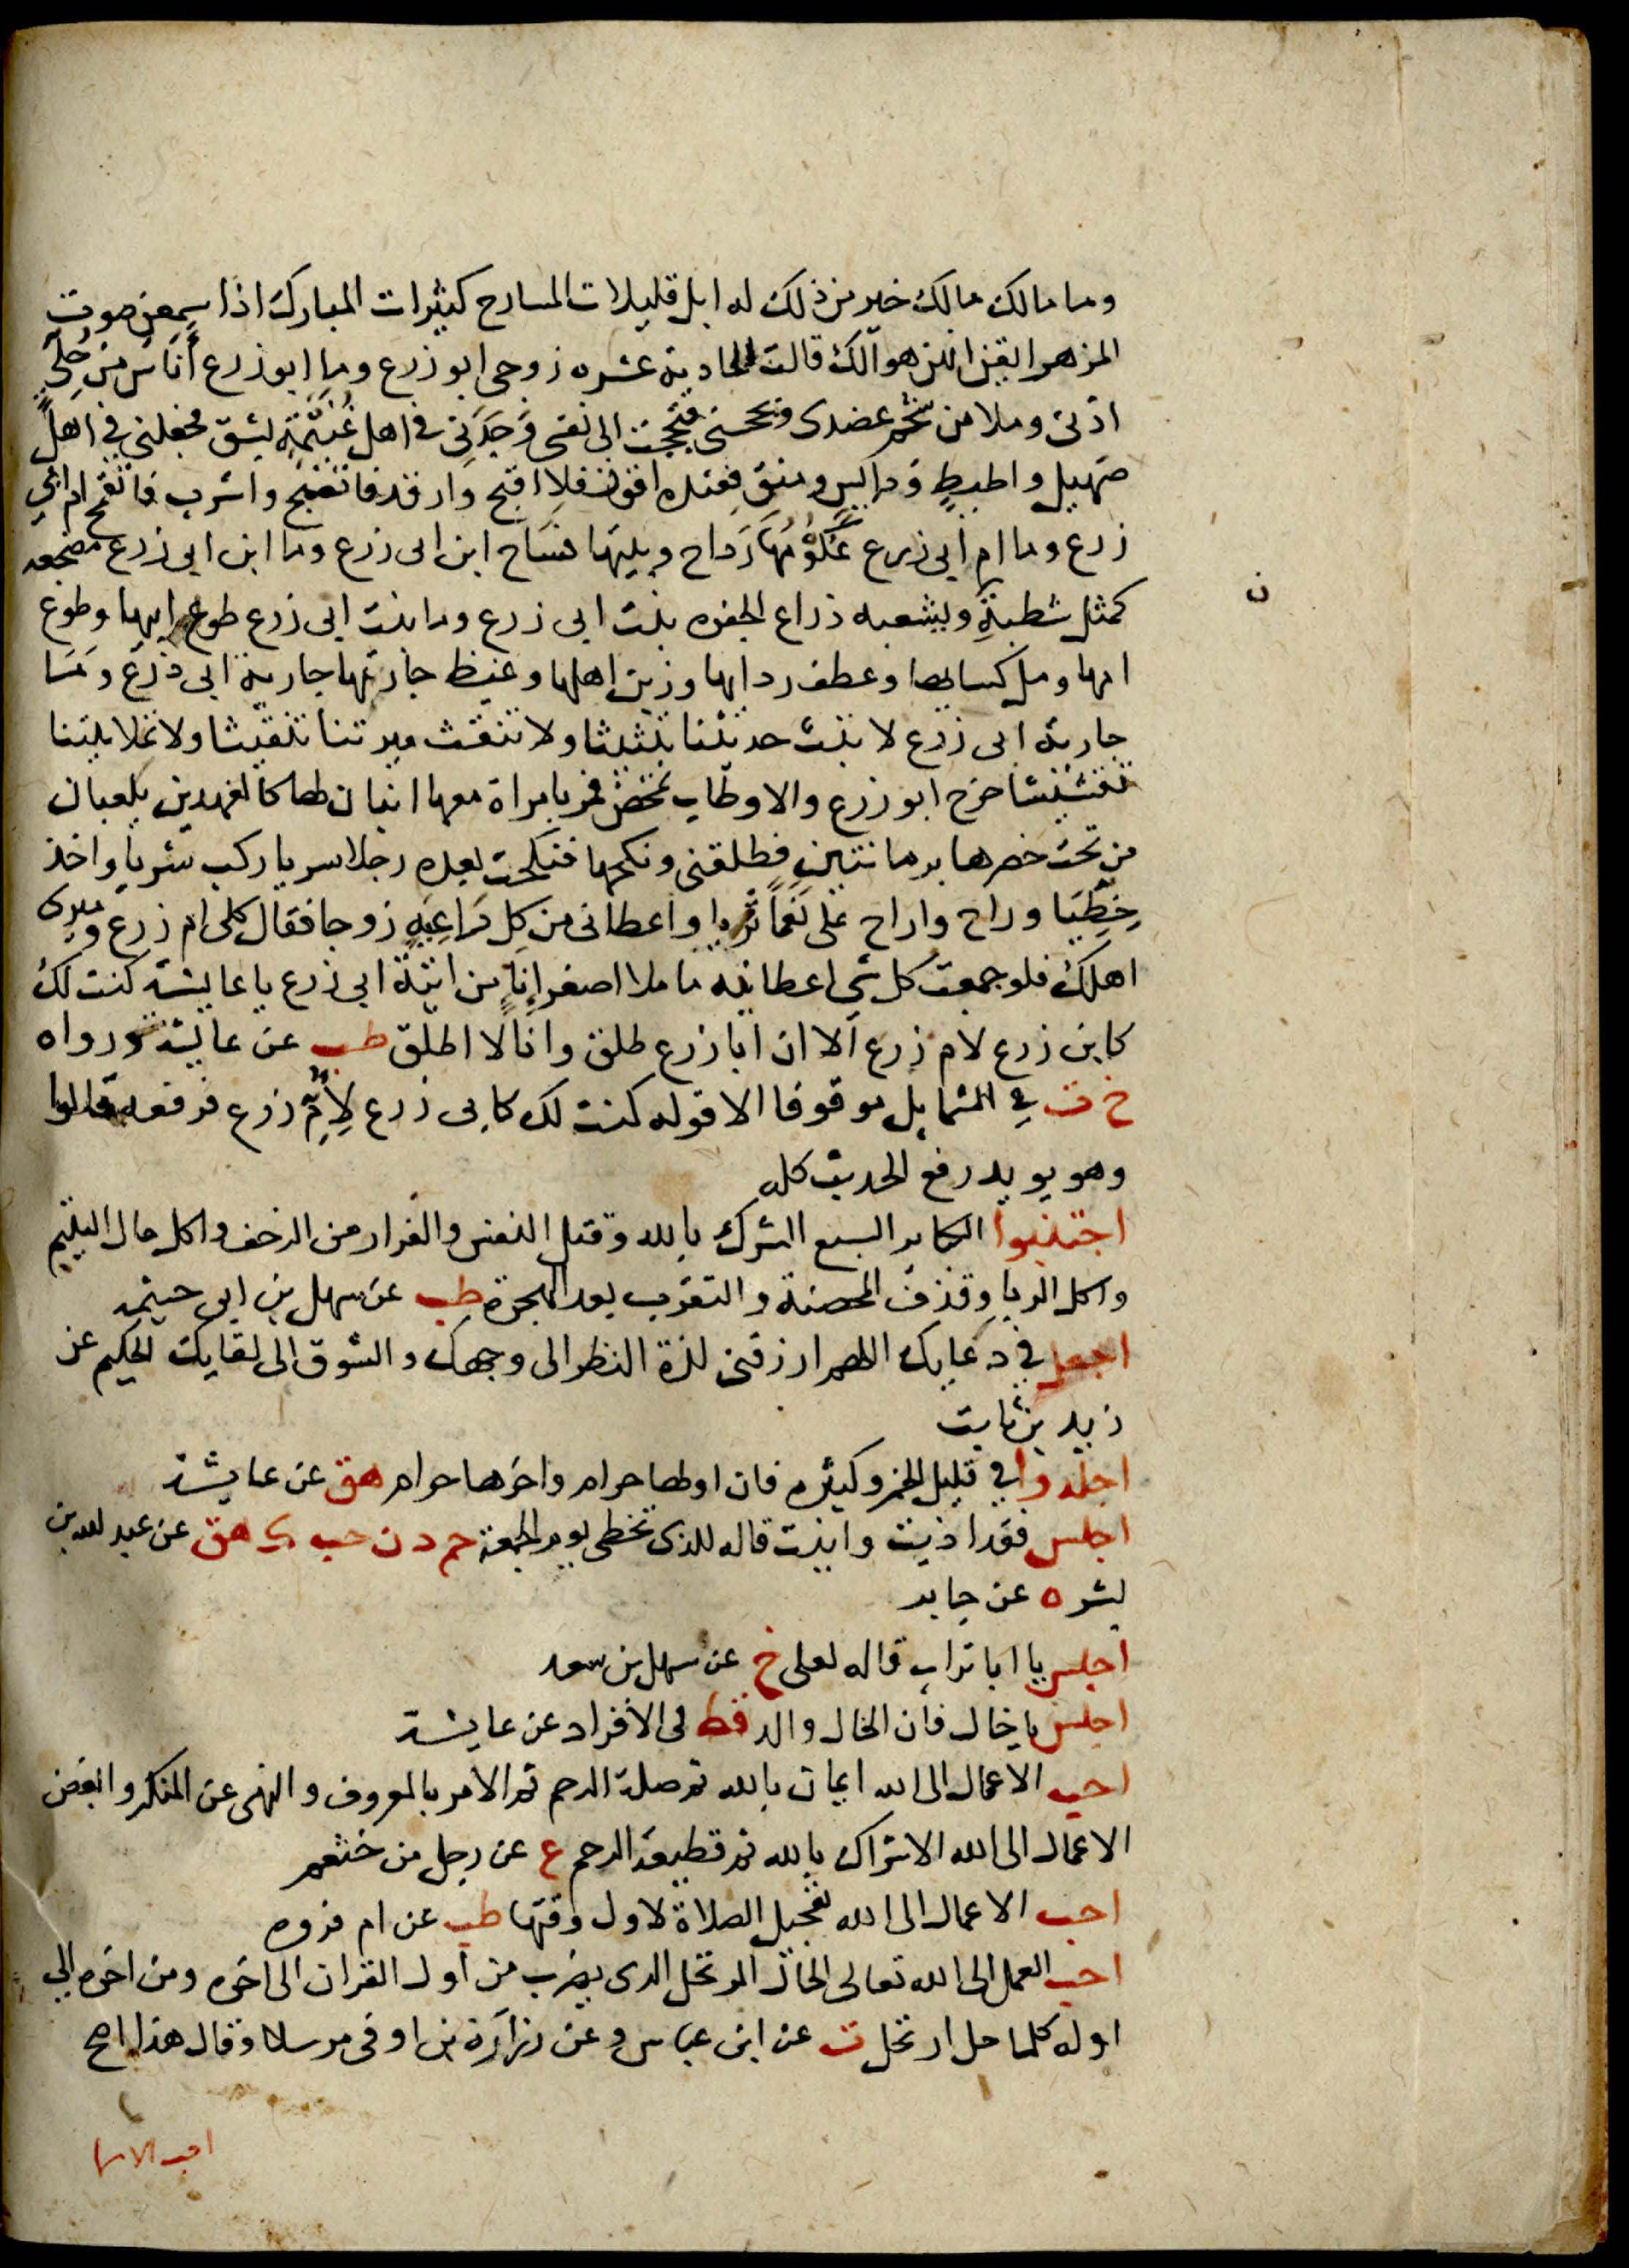 وما مالك مالك خير من ذلك له ابل قليلات المسارح كثيرات المبارك اذا سمعن صوت
المزهر ايقن انهن هوالك قالت الحادية عشره زوجي ابو زرع وما ابو زرع أناس من حلي
اذني وملا من شحم عضدى وبجحني فبجحت الى نفسى وجدني فى اهل غنيمة بشق فجعلني في اهل
صهيل واطيط ودايس ومنق فعنده اقول فلا اقبح وارقد فاتصبح واشرب فاتقمح ام ابي
زرع وما ام ابى زرع عكومها رداح وبيتها فساح ابن ابى زرع وما ابن ابى زرع مضجعه
كمثل شطبة ويشبعه ذراع الجفره بنت ابى زرع وما بنت ابى زرع طوع ابيها وطوع
امها ومل كسايها وعطف ردايها وزين اهلها وغيظ جارتها جارية ابى ذرع وما
جارية ابى زرع لا تبث حديثنا تبثيثا ولا تنقث ميرتنا تنقيثا ولا تملا بيتنا
تغشيشا خرج ابو زرع والاوطاب تمخض فمر بامراة معها ابنان لها كالفهدين يلعبان
من تحت خصرها برمانتين فطلقنى ونكحها فنكحت بعده رجلا سريا ركب شريا واخذ
خطيا وراح واراح على نعما ثريا واعطانى من كل راعية زوجا فقال كلى ام زرع وميرى
اهلك فلو جمعت كل شي اعطانيه ما ملا اصغر إناٍ من انية ابى زرع يا عايشة كنت لك
كابى زرع لام زرع الا ان ابا زرع طلق وانا لا اطلق طب عن عايشة ورواه
خ ت في الشمايل موقوفا الا قوله كنت لك كابى زرع لِأُمِّ زرع فرفعه قالوا
وهو يويد رفع الحديث كله
اجتنبوا الكباير السبع الشرك بالله وقتل النفس والفرار من الزحف واكل مال اليتيم
واكل الربا وقذف المحصنة والتعرب بعد الهجرة طب عن سهل بن ابى حثمه
اجعل في دعايك اللهم ارزقنى لذة النظر الى وجهك والشوق الى لقايك الحكيم عن
زيد بن ثابت
اجلدوا في قليل الخمر وكثيره فان اولها حرام واخرها حرام هق عن عايشة
اجلس فقد اذيت وانيت قاله للذى تخطى يوم الجمعة حم د ن حب ك هق عن عبد الله بن
بشر ه عن جابر
اجلس يا ابا تراب قاله لعلى خ عن سهل بن سعد
اجلس يا خال فان الخال والد قط فى الافراد عن عايشة
احب الاعمال الى الله ايمان بالله ثم صلة الرحم ثم الامر بالمعروف والنهى عن المنكر وابغض
الاعمال الى الله الاشراك بالله ثم قطيعة الرحم ع عن رجل من خثعم
احب الاعمال الى الله تعجيل الصلاة لاول وقتها طب عن ام فروه
احب العمل الى الله تعالى الحال المرتحل الذى يضرب من أول القران الى اخره ومن اخره الي
اوله كلما حل ارتحل ت عن ابن عباس وعن زرارة بن اوفى مرسلا وقال هذا اصح
احب الاسما
ن